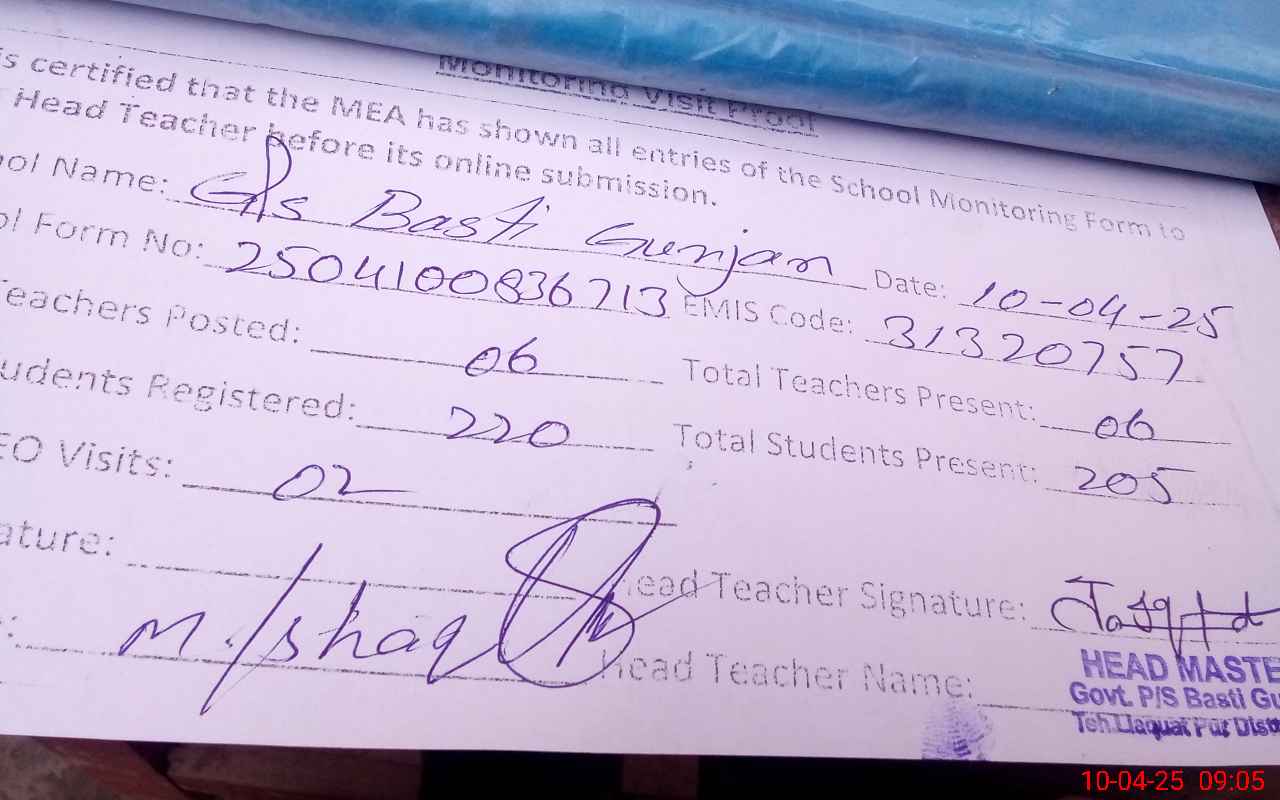 Monitoring Visit Proof
is certified that the MEA has shown all entries of the School Monitoring Form to
Head Teacher before its online submission.
ool Name: G/P/s Basti Gunjan Date: 10-04-25
ol Form No: 2504100836713 EMIS Code: 31320757
Teachers Posted: 06 Total Teachers Present: 06
udents Registered: 220 Total Students Present: 205
EO Visits: 02
ature: Head Teacher Signature:
M. Ishaq Head Teacher Name:
HEAD MASTE
Govt. P/S Basti Gu
Teh Liaquat Pur Distt
10-04-25 09:05